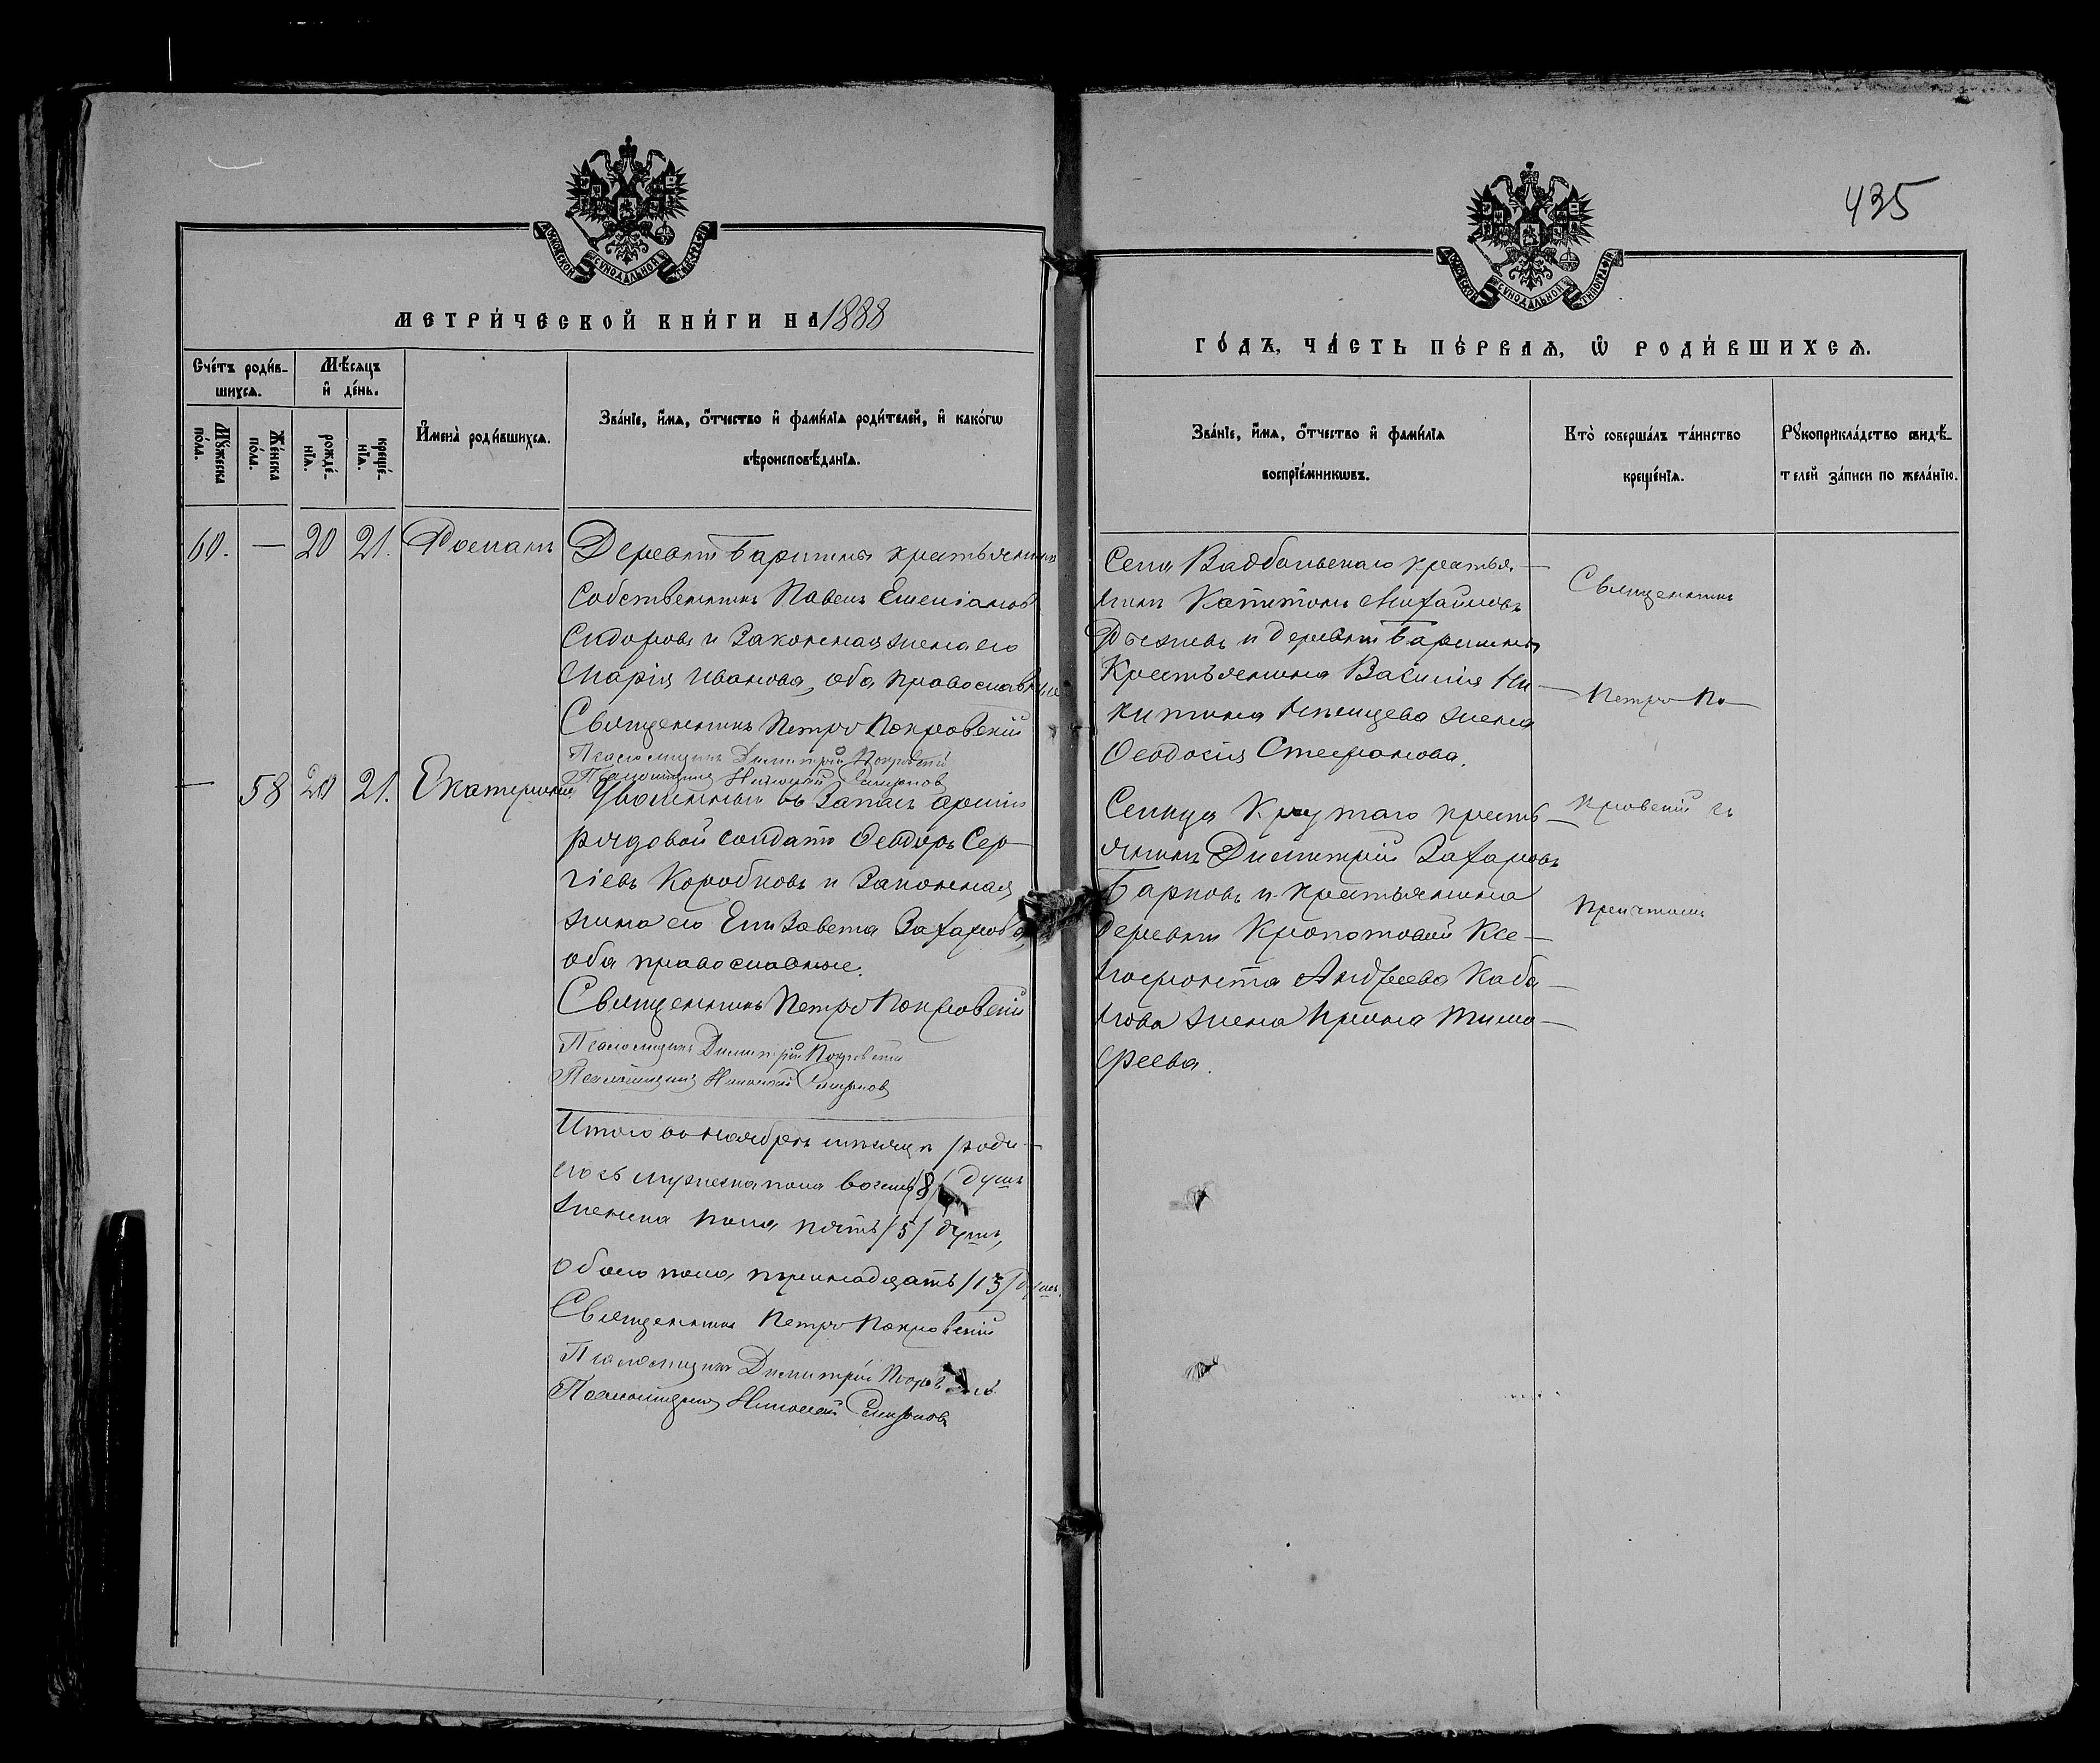 435
МОСКОВСКОЙ СѴНОДАЛЬНОЙ ТИПОГРАФІИ
МОСКОВСКОЙ СѴНОДАЛЬНОЙ ТИПОГРАФІИ
МЕТРИ́ЧЕСКОЙ КНИ́ГИ НА 1888
ГО́ДЪ, ЧА́СТЬ ПЕ́РВАѦ, Ѡ҆ РОДИ́ВШИХСѦ.
Сче́тъ роди́в-
шихсѧ.
Мꙋ́жеска
по́ла.
Же́нска
по́ла.
Мѣ́сѧцъ
и҆ де́нь.
рожде́-
нїѧ.
креще́-
нїѧ.
И҆мена̀ роди́вшихсѧ.
Зва́нїе, и҆́мѧ, ѻ҆́тчество и҆ фамѝлїѧ роди́телей, и҆ како́гѡ
вѣроисповѣ́данїѧ.
Зва́нїе, и҆́мѧ, ѻ҆́тчество и҆ фамѝлїѧ
воспрїе́мникѡвъ.
Кто̀ соверша́лъ та́инство
креще́нїѧ.
Рꙋкоприкла́дство свидѣ́-
телей за́писи по жела́нїю.
60. — 20 21. Романъ
Деревни Баринья крестьянинъ
собственникъ Павелъ Емеліановъ
Сидоровъ и законная жена его
Марія Иванова, оба православные
Священникъ Петръ Покровскій
Псаломщикъ Димитрій Покровскій
Псаломщикъ Николай Смирновъ
Села Вадбольскаго крестья-
нинъ Капитонъ Михайловъ
и деревни
Крестьянина Василія Ни-
китина жена
Ѳеодосія Стефанова.
Священникъ
Петръ По-
кровскій съ
причтомъ
— 58 20 21. Екатерина
Уволенный въ запасъ арміи
рядовой солдатъ Ѳеодоръ Сер-
гіевъ Коробковъ и законная
жена его Елизавета Захарова,
оба православные.
Священникъ Петръ Покровскій
Псаломщикъ Димитрій Покровскій
Псаломщикъ Николай Смирновъ
Сельца Крутаго кресть-
янинъ Димитрій Захаровъ
Барковъ и крестьянина
деревни Кропотовой Ксе-
нофонта Андреева Каба-
нова жена Ирина Тимо-
феева.
Итого въ ноябрѣ мѣсяцѣ роди-
лось мужеска пола восемь /8/ душъ
женска пола пять /5/ душъ,
обоего пола тринадцать /13/ душъ.
Священникъ Петръ Покровскій
Псаломщикъ Димитрій Покровскій
Псаломщикъ Николай Смирновъ